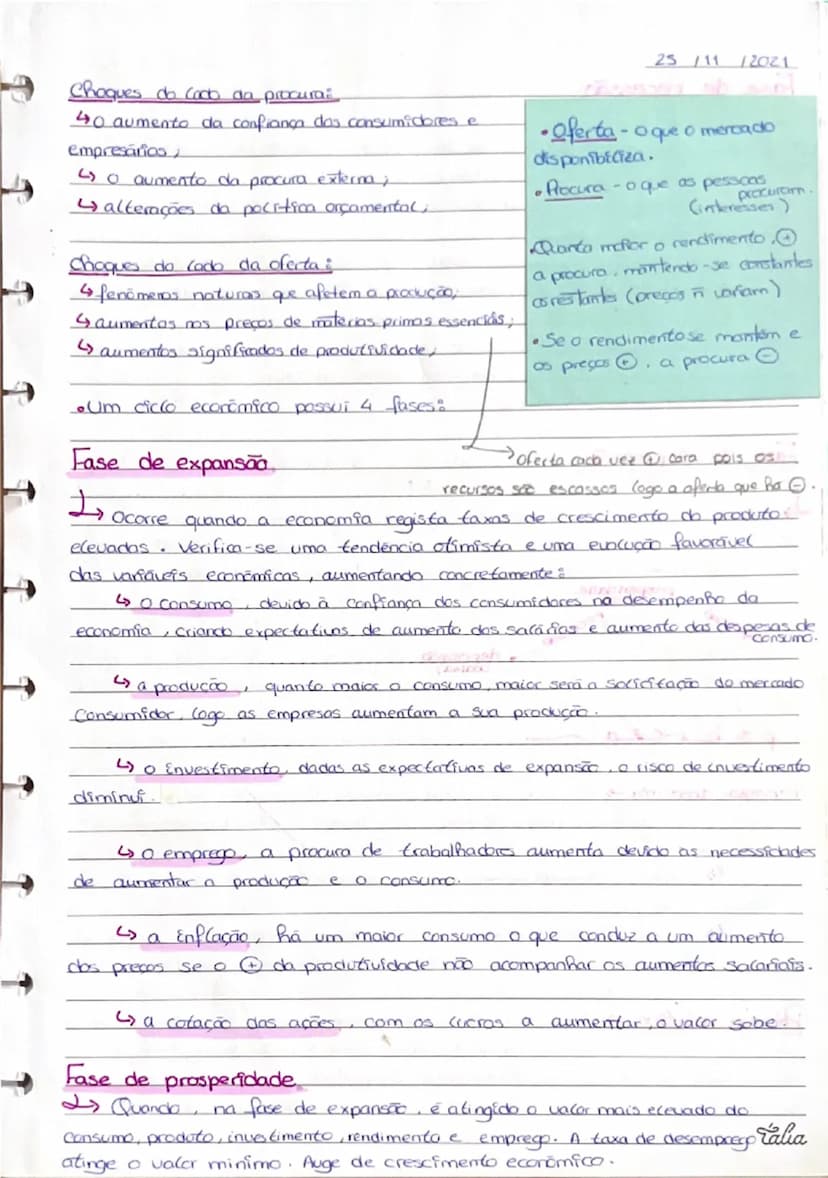 25 / 11 / 2021
Choques do lado da procura:
↳ o aumento da confiança dos consumidores e
empresários;
↳ o aumento da procura externa;
↳ alterações da política orçamental;
• Oferta - o que o mercado
disponibiliza.
• Procura - o que as pessoas
procuram.
(interesses)
Quanto maior o rendimento, ⊕
a procura, mantendo-se constantes
as restantes (preços ñ variam)
• Se o rendimento se mantém e
os preços ⊕, a procura ⊖
Choques do lado da oferta:
↳ fenómenos naturais que afetem a produção;
↳ aumentos nos preços de matérias primas essenciais;
↳ aumentos significados de produtividade;
• Um ciclo económico possui 4 fases:
→ Oferta cada vez ⊕ cara pois os
recursos são escassos logo a oferta que há ⊖.
Fase de expansão
↳ Ocorre quando a economia regista taxas de crescimento do produto
elevadas. Verifica-se uma tendência otimista e uma evolução favorável
das variáveis económicas, aumentando concretamente:
↳ o consumo, devido à confiança dos consumidores no desempenho da
economia, criando expectativas de aumento dos salários e aumento das despesas de
consumo.
↳ a produção, quanto maior o consumo, maior será a solicitação do mercado
consumidor, logo as empresas aumentam a sua produção.
↳ o investimento, dadas as expectativas de expansão, o risco de investimento
diminui.
↳ o emprego, a procura de trabalhadores aumenta devido as necessidades
de aumentar a produção e o consumo.
↳ a inflação, há um maior consumo o que conduz a um aumento
dos preços se o ⊕ da produtividade não acompanhar os aumentos salariais.
↳ a cotação das ações, com os lucros a aumentar, o valor sobe.
Fase de prosperidade
↳ Quando, na fase de expansão, é atingido o valor mais elevado do
consumo, produto, investimento, rendimento e emprego. A taxa de desemprego
atinge o valor minimo. Auge de crescimento económico.
Tália